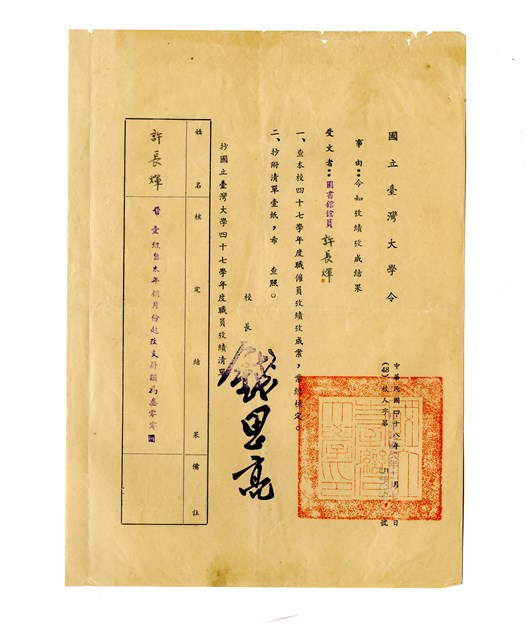 國立臺灣大學令
中華民國四十八年 月 日
(48)校人字第 號
事由：令知攷績攷成結果
受文者：圖書館館員 許長煇
一、查本校四十七學年度職僱員攷績攷成業，業經核定。
二、抄附清單壹紙，希 查照。
校長 錢思亮
抄國立臺灣大學四十七學年度職員攷績清單
姓名 核定結果 備註
許長煇 晉壹級自本年 月份起改支